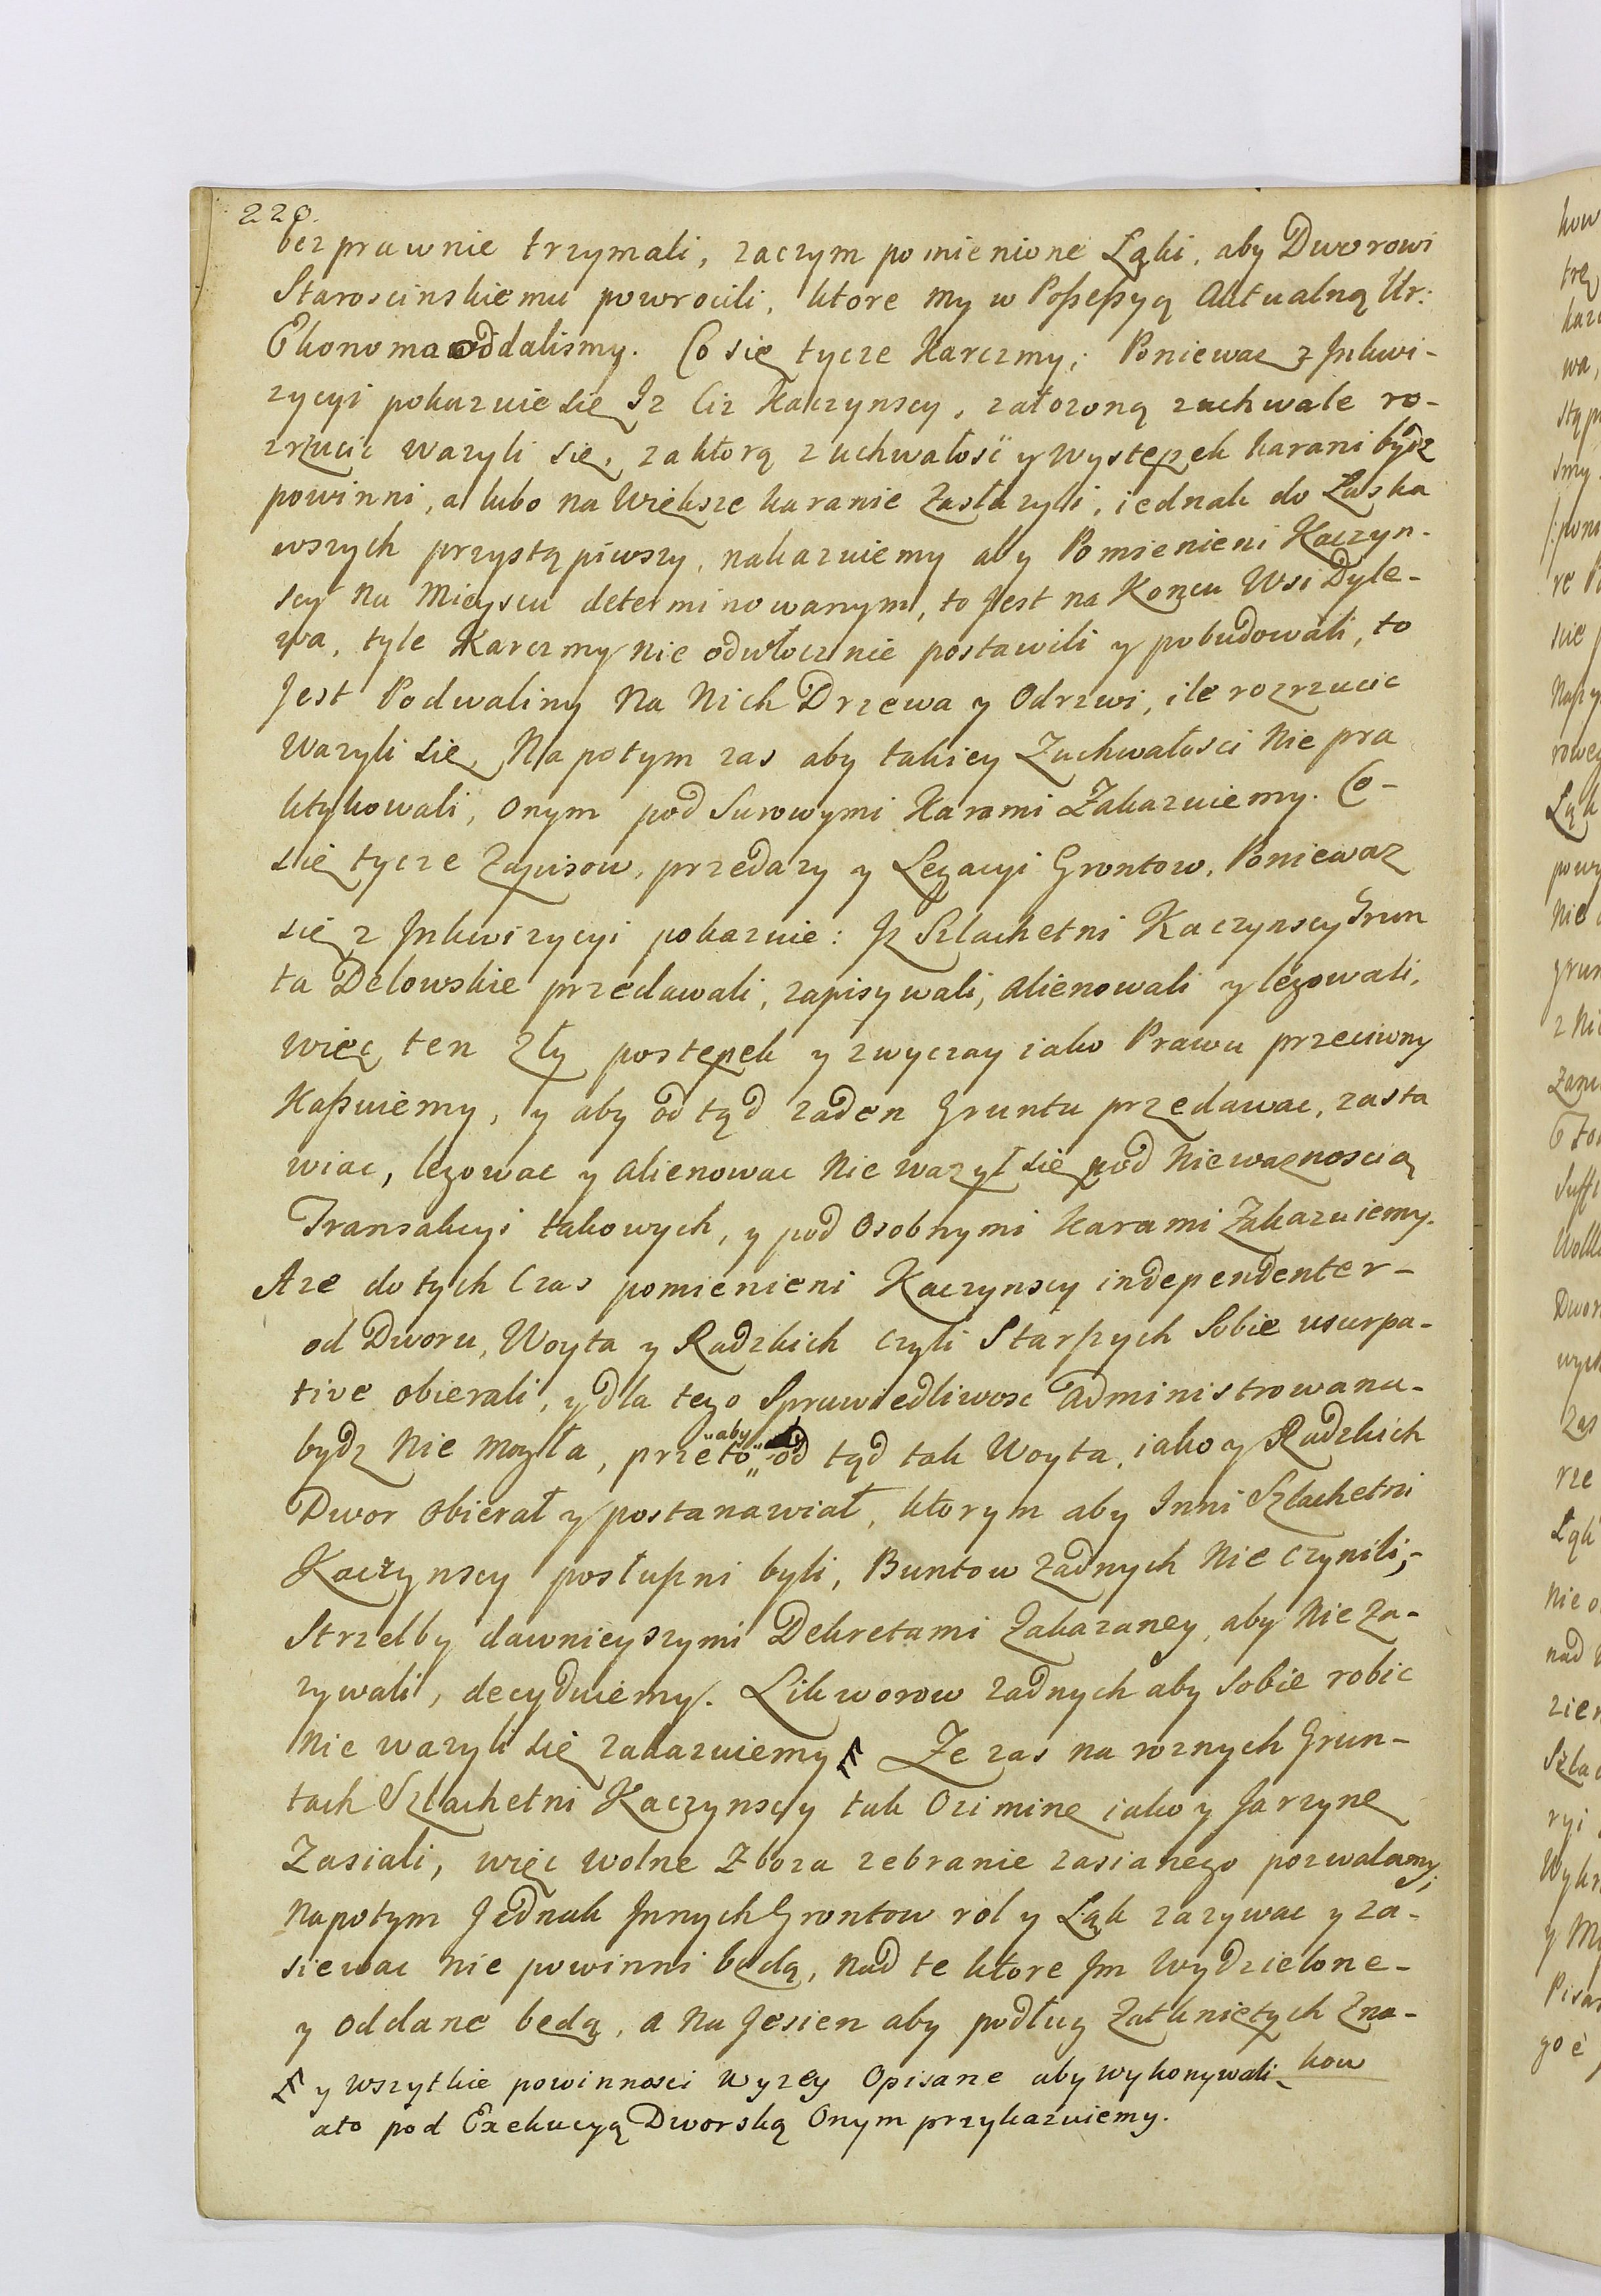 220.
bezprawnie trzymali, zaczym pomienione Łąki, aby Dworowi
Staroscinskiemu powrocili, ktore my w Possessyą Aktualną Ur:
Ekonoma oddalismy. Co się tycze Karczmy; Poniewaz z Inkwi-
zycyi pokazuie się Iz Ciz Kaczynscy, załozoną zuchwale ro-
zrzucic wazyli się, za ktorą zuchwałosć y wystepek karani bydz
powinni, a lubo na Większe karanie Zasłuzyli, iednak do Łaska
wszych przystąpiwszy, nakazuiemy aby Pomienieni Kaczyn-
scy na Mieyscu determinowanym, to Jest na Koncu Wsi Dyle-
wa, tyle Karczmy nie odwłocznie postawili y pobudowali, to
Jest Podwaliny na Nich Drzewa y Odrzwi, ile rozrzucic
Wazyli się, Na potym zas aby takiey Zuchwałosci Nie pra
ktykowali, Onym pod Surowymi Karami Zakazuiemy. Co-
się tycze Zapisow, przedazy y Legacyi Grontow, Poniewaz
się z Inkwizycyi pokazuie: Iz Szlachetni Kaczynscy Grun
ta Delowskie przedawali, zapisywali, alienowali y legowali,
więc ten zły postępek y zwyczay iako Prawu przeciwny
Kassuiemy, y aby od tąd zaden Gruntu przedawac, zasta
wiac, legowac y alienowac Nie wazył się pod Niewaznoscią
Transakcyi takowych, y pod Osobnymi Karami Zakazuiemy.
A ze do tych Czas pomienieni Kaczynscy independenter-
od Dworu, Woyta y Radzkich czyli Starszych Sobie usurpa-
tive obierali, y dla tego Sprawiedliwosc administrowana-
bydz Nie mogła, przeto „aby„ od tąd tak Woyta, iako y Radzkich
Dwor obierał y postanawiał, ktorym aby Inni Szlachetni
Kaczynscy posłuszni byli, Buntow Zadnych Nie Czynili,-
Strzelby dawnieyszymi Dekretami Zakazaney, aby Nie Za-
zywali, decyduiemy. Likworow zadnych aby Sobie robic
Nie wazyli się zakazuiemy Ze zas na roznych Grun-
tach Szlachetni Kaczynscy tak Oziminę iako y Jarzynę
Zasiali, więc wolne Zboza zebranie zasianego pozwalamy,
Napotym Jednak Innych Grontow rol y Łąk zazywac y za-
siewac nie powinni będą, nad te ktore Im Wydzielone-
y oddane będą, a na Jesien aby podług Zatknietych Zna-
kow
y wszytkie powinnosci wyzey Opisane aby wykonywali
ato pod Exekucyą Dworską Onym przykazuiemy.